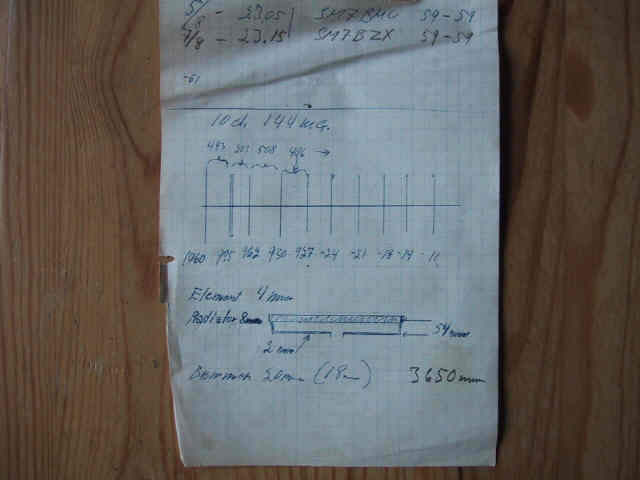 5/8 - 23.05 SM7BMU 59-59
7/8 - 23.15 SM7BZX 59-59
-61
10 el. 144 M.C.
1060 962 930 927 -24 -21 -18 -14 -11
Element 4 mm
Radiator 8mm 54mm
2 mm
20mm (18m) 3650mm